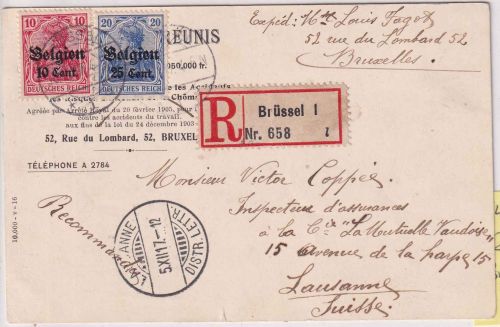 Expéd: Mr Louis Fagot
52 rue du Lombard 52
Bruxelles.
10 10
Belgien
10 Cent.
DEUTSCHES REICH
20 20
Belgien
25 Cent.
DEUTSCHES REICH
RÉUNIS
050,000 fr.
les Accidents
les Risques
Chôm
Agréée par Arrêté Royal du 20 février 1905, pour
contre les accidents du travail.
aux fins de la loi du 24 décembre 1903
52, Rue du Lombard, 52, BRUXEL
TÉLÉPHONE A 2784
R
Brüssel 1
Nr. 658 l
10,000 - V - 16
Recommandé
Monsieur Victor Coppée
Inspecteur d'assurances
à la Cie "La Mutuelle Vaudoise"
15 avenue de la harpe 15
Lausanne
Suisse.
LAUSANNE
5.XII.17.-12
DISTR. LETTR.